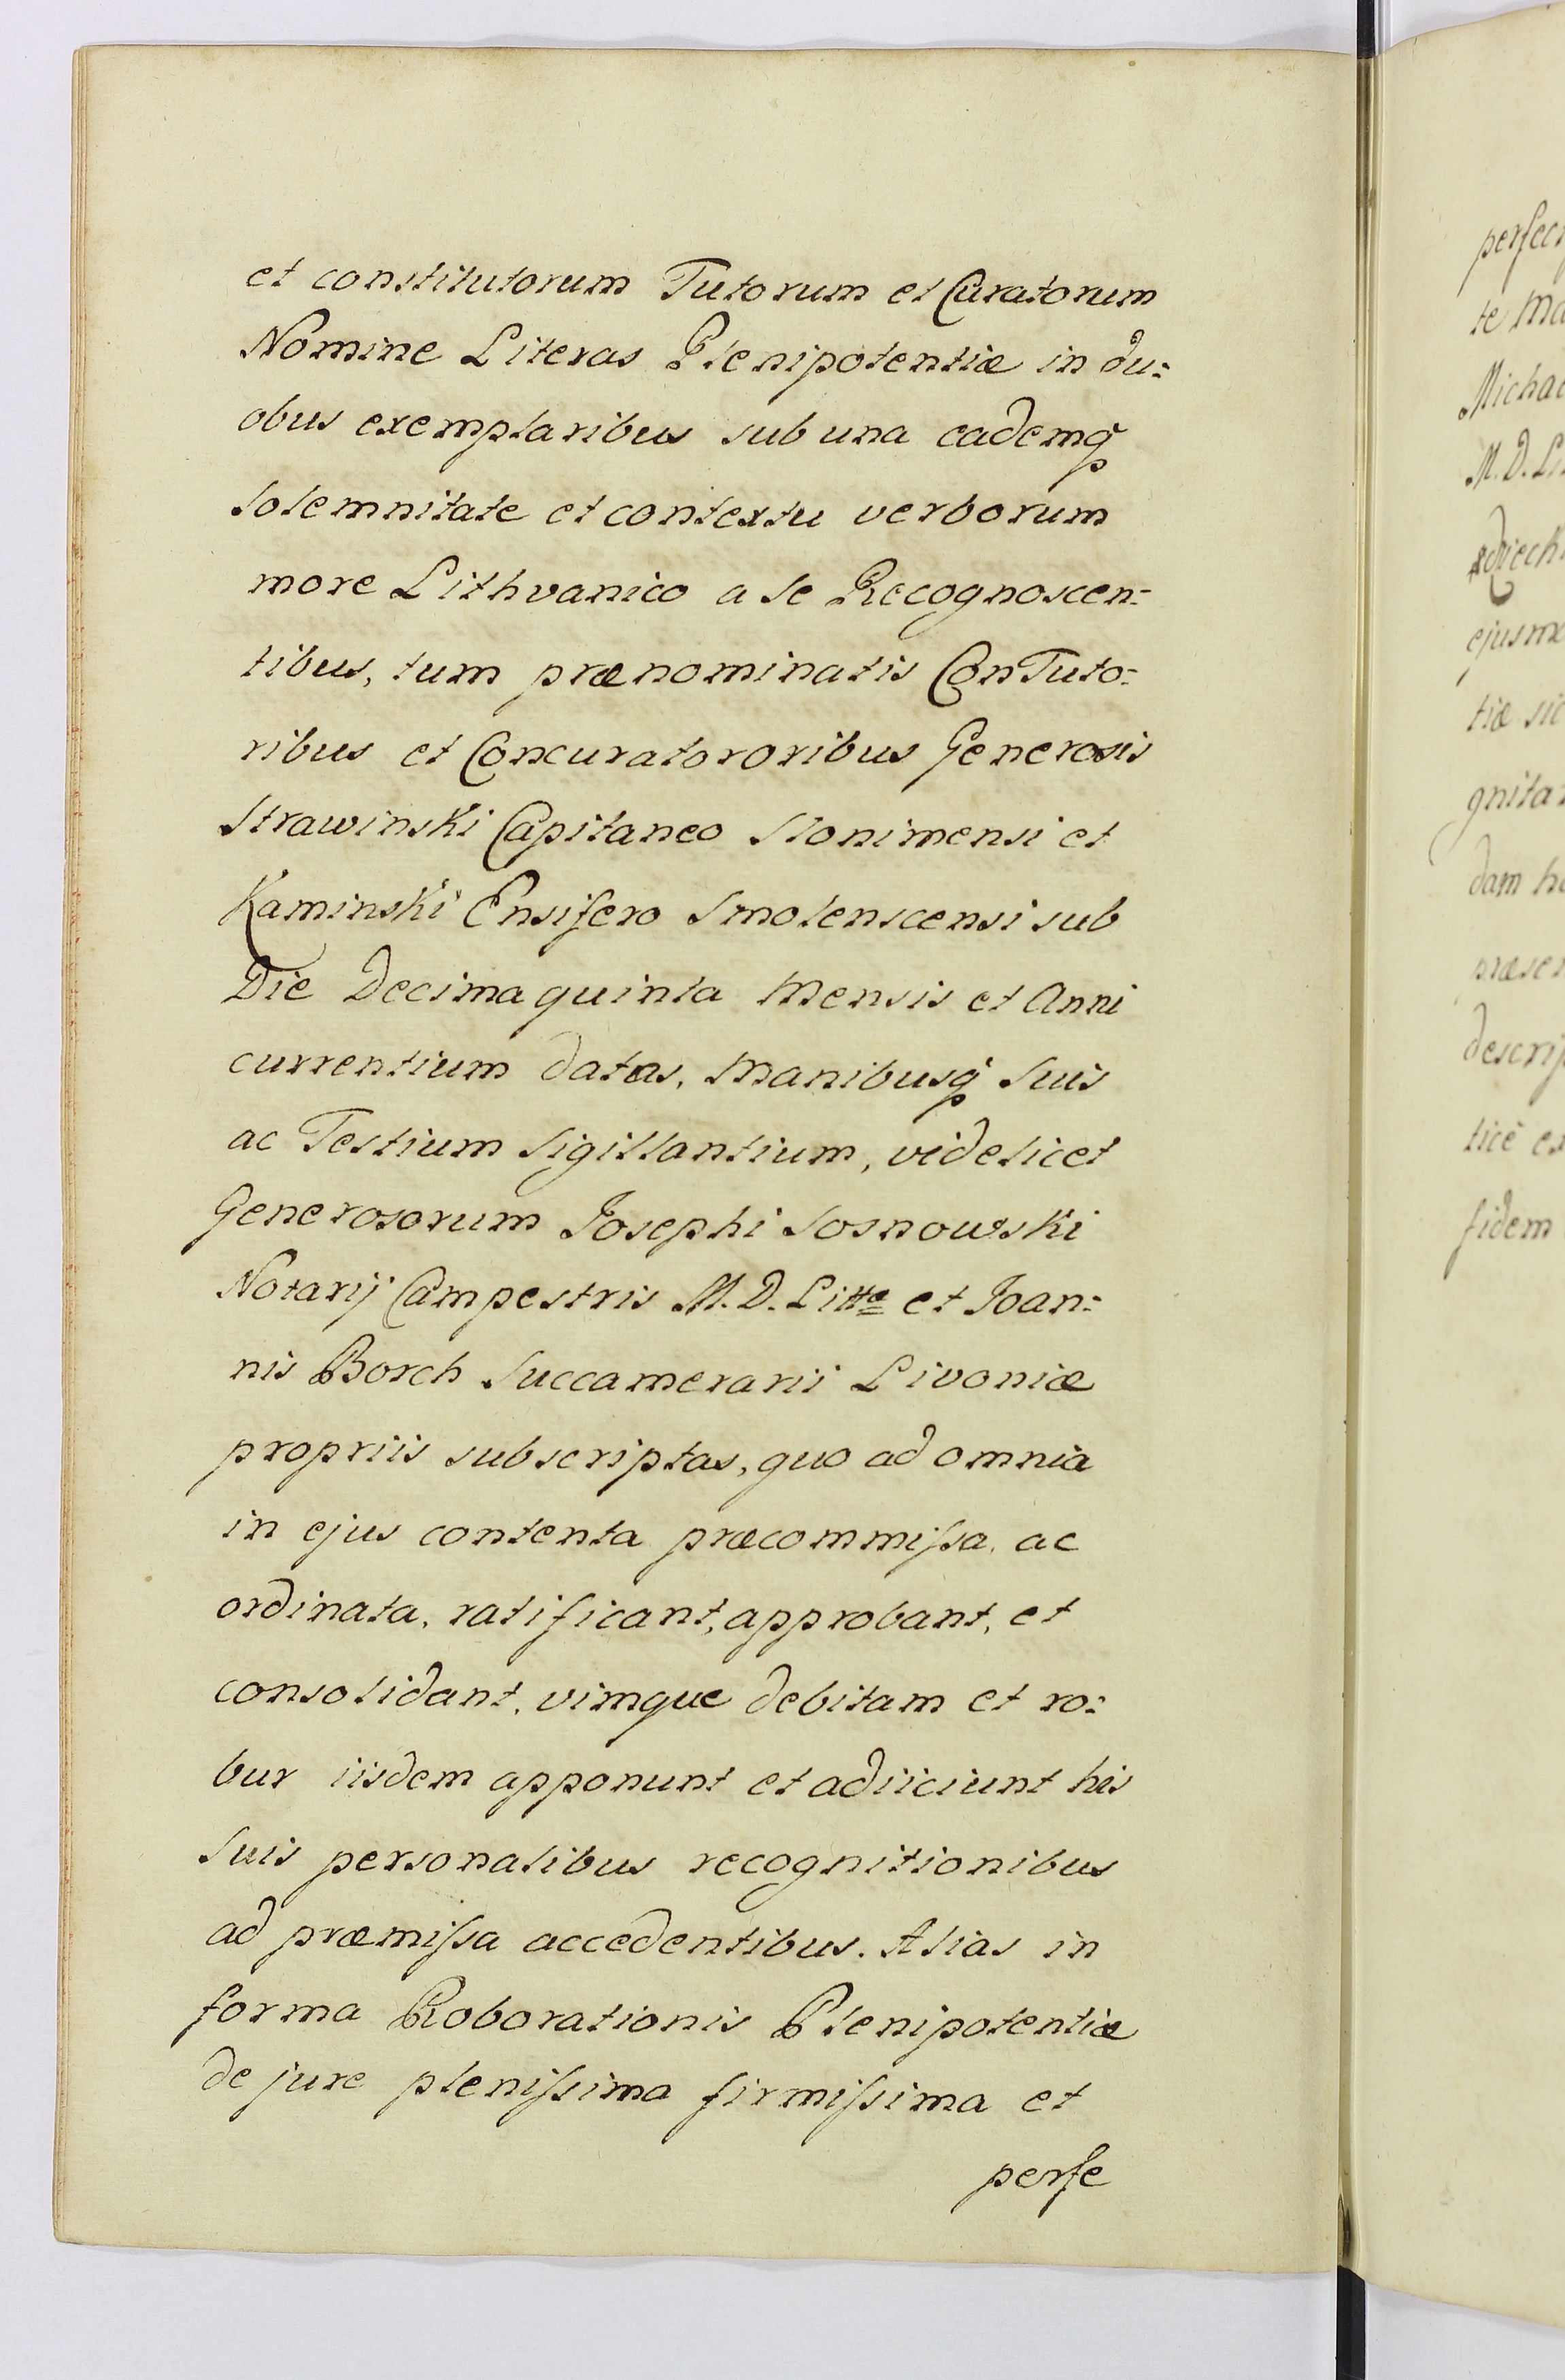 et constitutorum Tutorum et Curatorum
Nomine Literas Plenipotentiæ in du:
obus exemplaribus sub una eademq̃
solemnitate et contextu verborum
more Lithvanico a se Recognoscen:
tibus, tum prænominatis ConTuto:
ribus et Concuratororibus Generosis
Strawinski Capitaneo Slonimensi et
Kaminski Ensifero Smolenscensi sub
Die Decima quinta Mensis et Anni
currentium datas, Manibusq̃ suis
ac Testium Sigillantium, videlicet
Generosorum Josephi Sosnowski
Notarij Campestris M. D. Littæ et Joan:
nis Borch Succamerarii Livoniæ
propriis subscriptas, quo ad omnia
in ejus contenta præcommiſsa, ac
ordinata, ratificant, approbant, et
consolidant, vimque debitam et ro:
bur iisdem apponunt et adiiciunt his
suis personalibus recognitionibus
ad præmiſsa accedentibus. Alias in
forma Roborationis Plenipotentiæ
de jure pleniſsima firmiſsima et
perfe
perfec
te Ma
Michae
M. D. Li
ejusm
tiæ sic
gnita
dam h
descrip
ticè ex
fidem